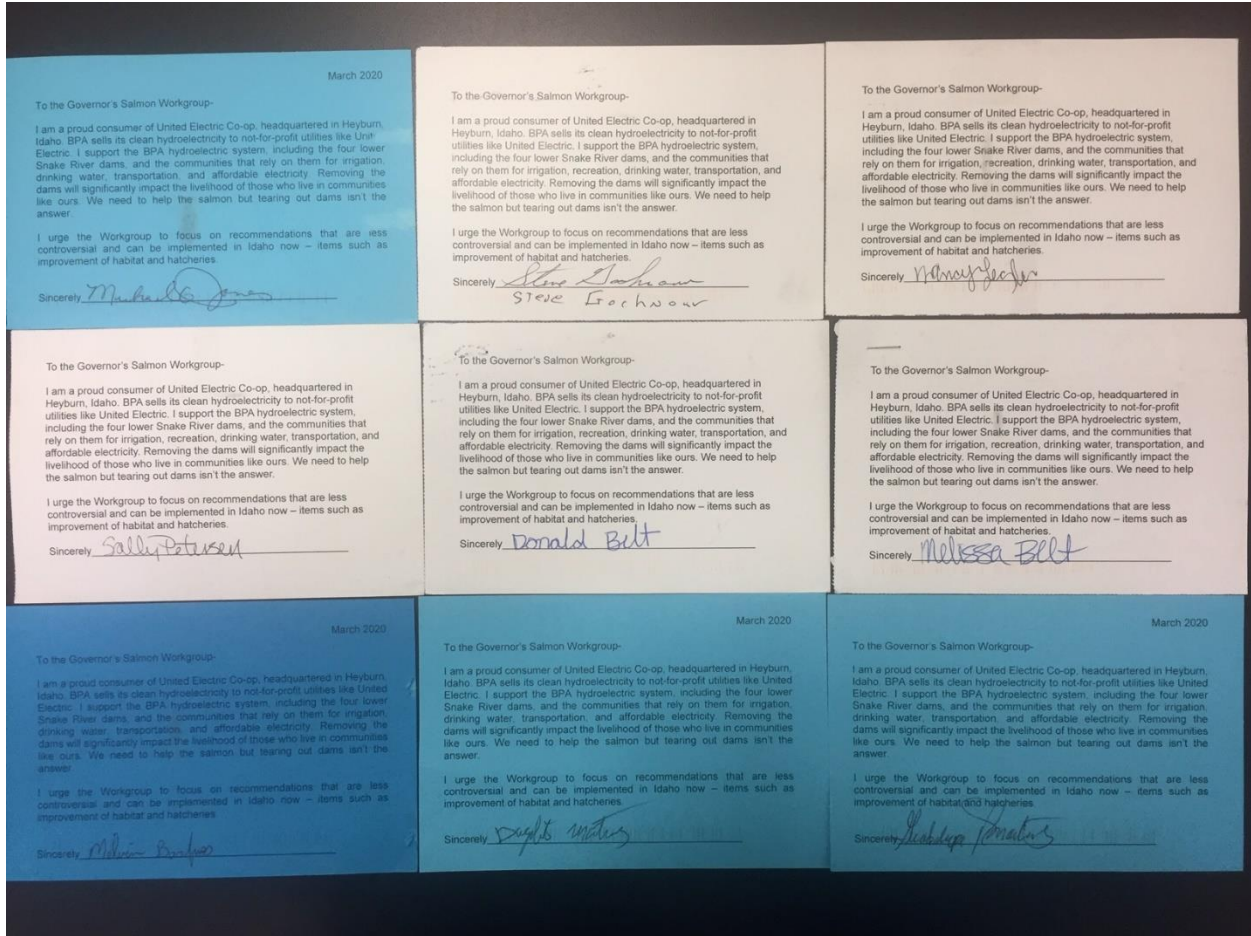 March 2020
To the Governor's Salmon Workgroup-
I am a proud consumer of United Electric Co-op, headquartered in Heyburn,
Idaho. BPA sells its clean hydroelectricity to not-for-profit utilities like Unit
Electric. I support the BPA hydroelectric system, including the four lower
Snake River dams, and the communities that rely on them for irrigation,
drinking water, transportation, and affordable electricity. Removing the
dams will significantly impact the livelihood of those who live in communities
like ours. We need to help the salmon but tearing out dams isn't the
answer.
I urge the Workgroup to focus on recommendations that are less
controversial and can be implemented in Idaho now – items such as
improvement of habitat and hatcheries.
Sincerely Jones
To the Governor's Salmon Workgroup-
I am a proud consumer of United Electric Co-op, headquartered in
Heyburn, Idaho. BPA sells its clean hydroelectricity to not-for-profit
utilities like United Electric. I support the BPA hydroelectric system,
including the four lower Snake River dams, and the communities that
rely on them for irrigation, recreation, drinking water, transportation, and
affordable electricity. Removing the dams will significantly impact the
livelihood of those who live in communities like ours. We need to help
the salmon but tearing out dams isn't the answer.
I urge the Workgroup to focus on recommendations that are less
controversial and can be implemented in Idaho now – items such as
improvement of habitat and hatcheries.
Sincerely Steve Gochnour
Steve Gochnour
To the Governor's Salmon Workgroup-
I am a proud consumer of United Electric Co-op, headquartered in
Heyburn, Idaho. BPA sells its clean hydroelectricity to not-for-profit
utilities like United Electric. I support the BPA hydroelectric system,
including the four lower Snake River dams, and the communities that
rely on them for irrigation, recreation, drinking water, transportation, and
affordable electricity. Removing the dams will significantly impact the
livelihood of those who live in communities like ours. We need to help
the salmon but tearing out dams isn't the answer.
I urge the Workgroup to focus on recommendations that are less
controversial and can be implemented in Idaho now – items such as
improvement of habitat and hatcheries.
Sincerely Nancy
To the Governor's Salmon Workgroup-
I am a proud consumer of United Electric Co-op, headquartered in
Heyburn, Idaho. BPA sells its clean hydroelectricity to not-for-profit
utilities like United Electric. I support the BPA hydroelectric system,
including the four lower Snake River dams, and the communities that
rely on them for irrigation, recreation, drinking water, transportation, and
affordable electricity. Removing the dams will significantly impact the
livelihood of those who live in communities like ours. We need to help
the salmon but tearing out dams isn't the answer.
I urge the Workgroup to focus on recommendations that are less
controversial and can be implemented in Idaho now – items such as
improvement of habitat and hatcheries.
Sincerely Sally Petersen
To the Governor's Salmon Workgroup-
I am a proud consumer of United Electric Co-op, headquartered in
Heyburn, Idaho. BPA sells its clean hydroelectricity to not-for-profit
utilities like United Electric. I support the BPA hydroelectric system,
including the four lower Snake River dams, and the communities that
rely on them for irrigation, recreation, drinking water, transportation, and
affordable electricity. Removing the dams will significantly impact the
livelihood of those who live in communities like ours. We need to help
the salmon but tearing out dams isn't the answer.
I urge the Workgroup to focus on recommendations that are less
controversial and can be implemented in Idaho now – items such as
improvement of habitat and hatcheries.
Sincerely Donald Belt
To the Governor's Salmon Workgroup-
I am a proud consumer of United Electric Co-op, headquartered in
Heyburn, Idaho. BPA sells its clean hydroelectricity to not-for-profit
utilities like United Electric. I support the BPA hydroelectric system,
including the four lower Snake River dams, and the communities that
rely on them for irrigation, recreation, drinking water, transportation, and
affordable electricity. Removing the dams will significantly impact the
livelihood of those who live in communities like ours. We need to help
the salmon but tearing out dams isn't the answer.
I urge the Workgroup to focus on recommendations that are less
controversial and can be implemented in Idaho now – items such as
improvement of habitat and hatcheries.
Sincerely Melissa Belt
March 2020
To the Governor's Salmon Workgroup-
I am a proud consumer of United Electric Co-op, headquartered in Heyburn,
Idaho. BPA sells its clean hydroelectricity to not-for-profit utilities like United
Electric. I support the BPA hydroelectric system, including the four lower
Snake River dams, and the communities that rely on them for irrigation,
drinking water, transportation, and affordable electricity. Removing the
dams will significantly impact the livelihood of those who live in communities
like ours. We need to help the salmon but tearing out dams isn't the
answer.
I urge the Workgroup to focus on recommendations that are less
controversial and can be implemented in Idaho now – items such as
improvement of habitat and hatcheries.
Sincerely Melvin
March 2020
To the Governor's Salmon Workgroup-
I am a proud consumer of United Electric Co-op, headquartered in Heyburn,
Idaho. BPA sells its clean hydroelectricity to not-for-profit utilities like United
Electric. I support the BPA hydroelectric system, including the four lower
Snake River dams, and the communities that rely on them for irrigation,
drinking water, transportation, and affordable electricity. Removing the
dams will significantly impact the livelihood of those who live in communities
like ours. We need to help the salmon but tearing out dams isn't the
answer.
I urge the Workgroup to focus on recommendations that are less
controversial and can be implemented in Idaho now – items such as
improvement of habitat and hatcheries.
Sincerely
March 2020
To the Governor's Salmon Workgroup-
I am a proud consumer of United Electric Co-op, headquartered in Heyburn,
Idaho. BPA sells its clean hydroelectricity to not-for-profit utilities like United
Electric. I support the BPA hydroelectric system, including the four lower
Snake River dams, and the communities that rely on them for irrigation,
drinking water, transportation, and affordable electricity. Removing the
dams will significantly impact the livelihood of those who live in communities
like ours. We need to help the salmon but tearing out dams isn't the
answer.
I urge the Workgroup to focus on recommendations that are less
controversial and can be implemented in Idaho now – items such as
improvement of habitat and hatcheries.
Sincerely